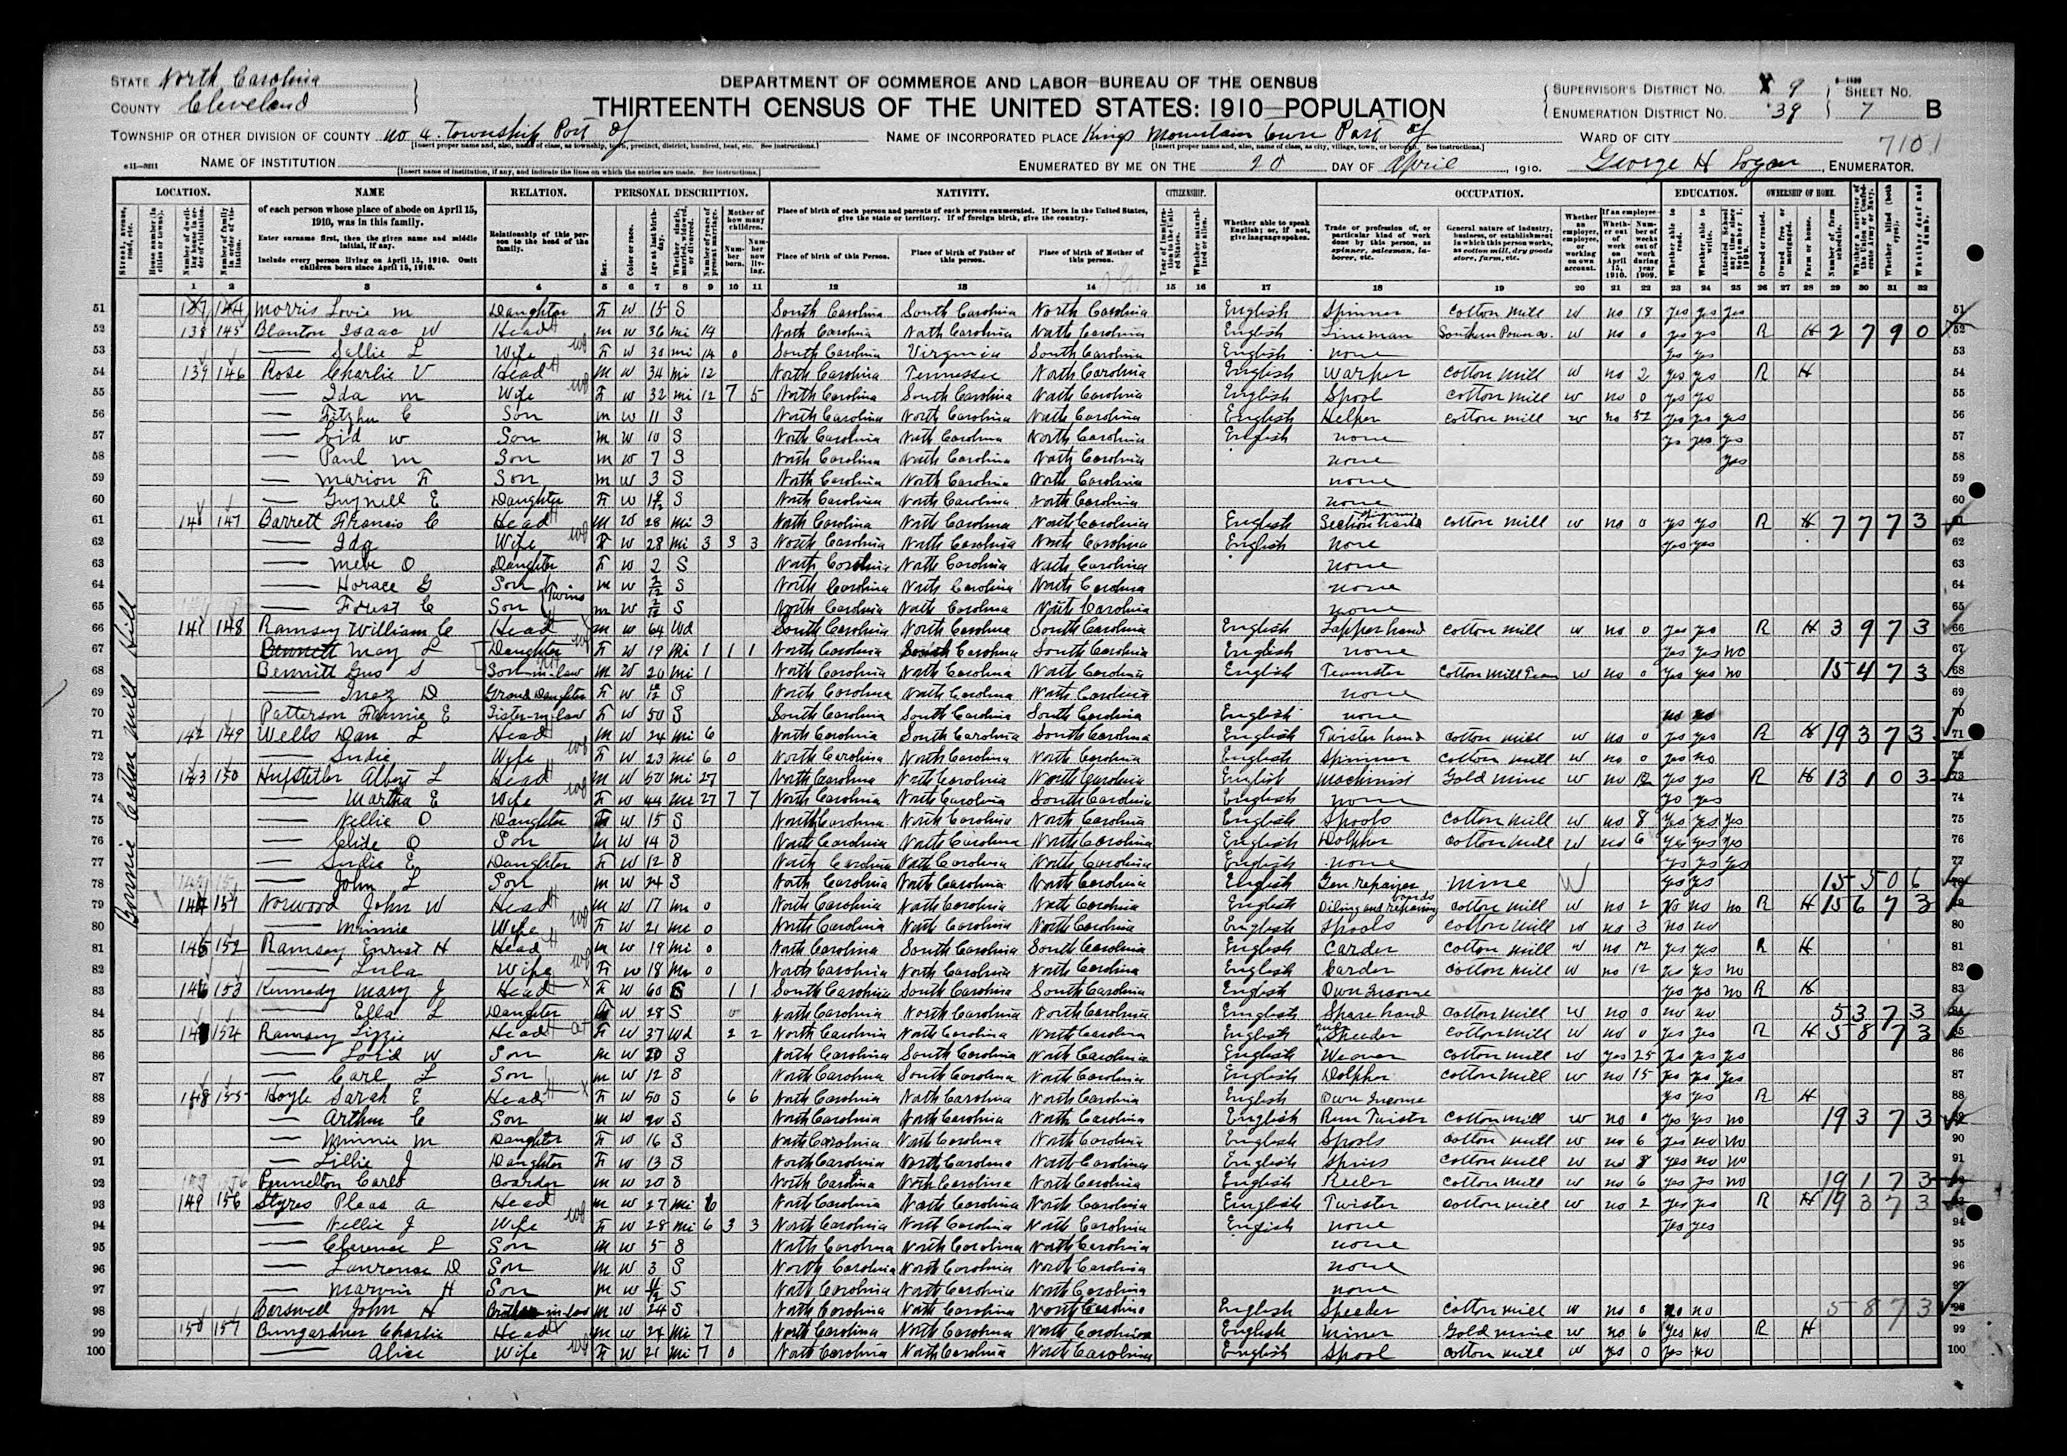 STATE North Carolina
COUNTY Cleveland
DEPARTMENT OF COMMERCE AND LABOR—BUREAU OF THE CENSUS
THIRTEENTH CENSUS OF THE UNITED STATES: 1910—POPULATION
SUPERVISOR'S DISTRICT NO. 9
ENUMERATION DISTRICT NO. 39
SHEET NO. 7 B
TOWNSHIP OR OTHER DIVISION OF COUNTY No 4 Township Part of
NAME OF INCORPORATED PLACE Kings Mountain Town Part of
WARD OF CITY
7101
NAME OF INSTITUTION
ENUMERATED BY ME ON THE 20 DAY OF April, 1910. George H Logan, ENUMERATOR.
LOCATION. NAME RELATION. PERSONAL DESCRIPTION. NATIVITY. CITIZENSHIP. OCCUPATION. EDUCATION. OWNERSHIP OF HOME.
of each person whose place of abode on April 15, 1910, was in this family.
Enter surname first, then the given name and middle initial, if any.
Include every person living on April 15, 1910. Omit children born since April 15, 1910.
Relationship of this person to the head of the family.
Place of birth of each person and parents of each person enumerated. If born in the United States, give the state or territory. If of foreign birth, give the country.
Place of birth of this Person. Place of birth of Father of this person. Place of birth of Mother of this person.
1 2 3 4 5 6 7 8 9 10 11 12 13 14 15 16 17 18 19 20 21 22 23 24 25 26 27 28 29 30 31 32
Bonnie Cotton Mill Hill
51 137 144 Morris Lovie M Daughter F W 15 S South Carolina South Carolina North Carolina English Spinner Cotton Mill W no 18 yes yes yes
52 138 145 Blanton Isaac W Head M W 36 Mi 14 North Carolina North Carolina North Carolina English Lineman Southern Power Co. W no 0 yes yes R H 2 7 9 0
53 — Sallie L Wife F W 30 Mi 14 0 South Carolina Virginia South Carolina English none yes yes
54 139 146 Rose Charlie V Head M W 34 Mi 12 North Carolina Tennessee North Carolina English Warper Cotton Mill W no 2 yes yes R H
55 — Ida M Wife F W 32 Mi 12 7 5 North Carolina South Carolina North Carolina English Spool Cotton Mill W no 0 yes yes
56 — Fitzhu C Son M W 11 S North Carolina North Carolina North Carolina English Helper Cotton Mill W no 32 yes yes yes
57 — Loid W Son M W 10 S North Carolina North Carolina North Carolina English none yes yes yes
58 — Paul M Son M W 7 S North Carolina North Carolina North Carolina none yes
59 — Marion F Son M W 3 S North Carolina North Carolina North Carolina none
60 — E Daughter F W S North Carolina North Carolina North Carolina none
61 140 147 Barrett Francis C Head M W 28 Mi 3 North Carolina North Carolina North Carolina English Section hand Cotton Mill W no 0 yes yes R H 7 7 7 3
62 — Ida Wife F W 28 Mi 3 3 3 North Carolina North Carolina North Carolina English none yes yes
63 — O Daughter F W 2 S North Carolina North Carolina North Carolina none
64 — Horace G Son Twins M W 2/12 S North Carolina North Carolina North Carolina none
65 — Forest C Son M W 2/12 S North Carolina North Carolina North Carolina none
66 141 148 Ramsey William C Head M W 64 Wd South Carolina North Carolina South Carolina English Lapper hand Cotton Mill W no 0 yes yes R H 3 9 7 3
67 Bennett May L Daughter F W 19 Mi 1 1 1 North Carolina South Carolina South Carolina English none yes yes no
68 Bennitt Gus S Son-in-law M W 20 Mi 1 North Carolina North Carolina North Carolina English Teamster Cotton Mill Team W no 0 yes yes no 15 4 7 3
69 — Inez D Grand Daughter F W S North Carolina North Carolina North Carolina none
70 Patterson Fannie E Sister-in-law F W 50 S South Carolina South Carolina South Carolina English none no no
71 142 149 Wells Dan L Head M W 24 Mi 6 North Carolina South Carolina South Carolina English Twister hand Cotton Mill W no 0 yes yes R H 19 3 7 3
72 — Sudie Wife F W 23 Mi 6 0 North Carolina North Carolina North Carolina English Spinner Cotton Mill W no 0 yes no
73 143 150 Hufstetler Albert L Head M W 50 Mi 27 North Carolina North Carolina North Carolina English Machinist Gold Mine W no 12 yes yes R H 13 1 0 3
74 — Martha E Wife F W 44 Mi 27 7 7 North Carolina North Carolina South Carolina English none yes yes
75 — Nellie O Daughter F W 15 S North Carolina North Carolina North Carolina English Spools Cotton Mill W no 8 yes yes yes
76 — Clide O Son M W 14 S North Carolina North Carolina North Carolina English Dolpher Cotton Mill W no 6 yes yes yes
77 — Sudie E Daughter F W 12 S North Carolina North Carolina North Carolina English none yes yes yes
78 — John L Son M W 24 S North Carolina North Carolina North Carolina English Gen. repairer Mine W yes yes 15 5 0 6
79 144 151 Norwood John W Head M W 17 Mi 0 North Carolina North Carolina North Carolina English Oiling and repairing bands Cotton Mill W no 2 no no no R H 15 6 7 3
80 — Minnie Wife F W 21 Mi 0 North Carolina North Carolina North Carolina English Spools Cotton Mill W no 3 no no
81 145 152 Ramsey Ernest H Head M W 19 Mi 0 North Carolina South Carolina South Carolina English Carder Cotton Mill W no 12 yes yes R H
82 — Lula Wife F W 18 Mi 0 North Carolina North Carolina North Carolina English Carder Cotton Mill W no 12 yes yes no
83 146 153 Kennedy Mary J Head F W 60 S 1 1 South Carolina South Carolina South Carolina English Own Income yes yes no R H
84 — Ella L Daughter F W 28 S 0 North Carolina North Carolina North Carolina English Spare hand Cotton Mill W no 0 no no 5 3 7 3
85 147 154 Ramsey Lizzie Head F W 37 Wd 2 2 North Carolina North Carolina North Carolina English Speeder Cotton Mill W no 0 yes yes R H 5 8 7 3
86 — Loid W Son M W 20 S North Carolina South Carolina North Carolina English Weaver Cotton Mill W yes 25 yes yes yes
87 — Carl L Son M W 12 S North Carolina South Carolina North Carolina English Dolpher Cotton Mill W no 15 yes yes yes
88 148 155 Hoyle Sarah E Head F W 50 S 6 6 North Carolina North Carolina North Carolina English Own Income yes yes R H
89 — Arthur C Son M W 20 S North Carolina North Carolina North Carolina English Run Twister Cotton Mill W no 0 yes yes no 19 3 7 3
90 — Minnie M Daughter F W 16 S North Carolina North Carolina North Carolina English Spools Cotton Mill W no 6 yes no no
91 — Lillie J Daughter F W 13 S North Carolina North Carolina North Carolina English Spins Cotton Mill W no 8 yes no no
92 Carl Boarder M W 20 S North Carolina North Carolina North Carolina English Reeler Cotton Mill W no 6 yes yes no 19 1 7 3
93 149 156 Styres Pleas A Head M W 27 Mi 6 North Carolina North Carolina North Carolina English Twister Cotton Mill W no 2 yes yes R H 19 3 7 3
94 — Nellie J Wife F W 28 Mi 6 3 3 North Carolina North Carolina North Carolina English none yes yes
95 — Clarence L Son M W 5 S North Carolina North Carolina North Carolina none
96 — Lawrence D Son M W 3 S North Carolina North Carolina North Carolina none
97 — Marvin H Son M W S North Carolina North Carolina North Carolina none
98 Carswell John H Brother-in-law M W 24 S North Carolina North Carolina North Carolina English Speeder Cotton Mill W no 0 no no 5 8 7 3
99 150 157 Bumgardner Charlie Head M W 24 Mi 7 North Carolina North Carolina North Carolina English Miner Gold Mine W no 6 yes no R H
100 — Alice Wife F W 21 Mi 7 0 North Carolina North Carolina North Carolina English Spool Cotton Mill W yes 0 yes no